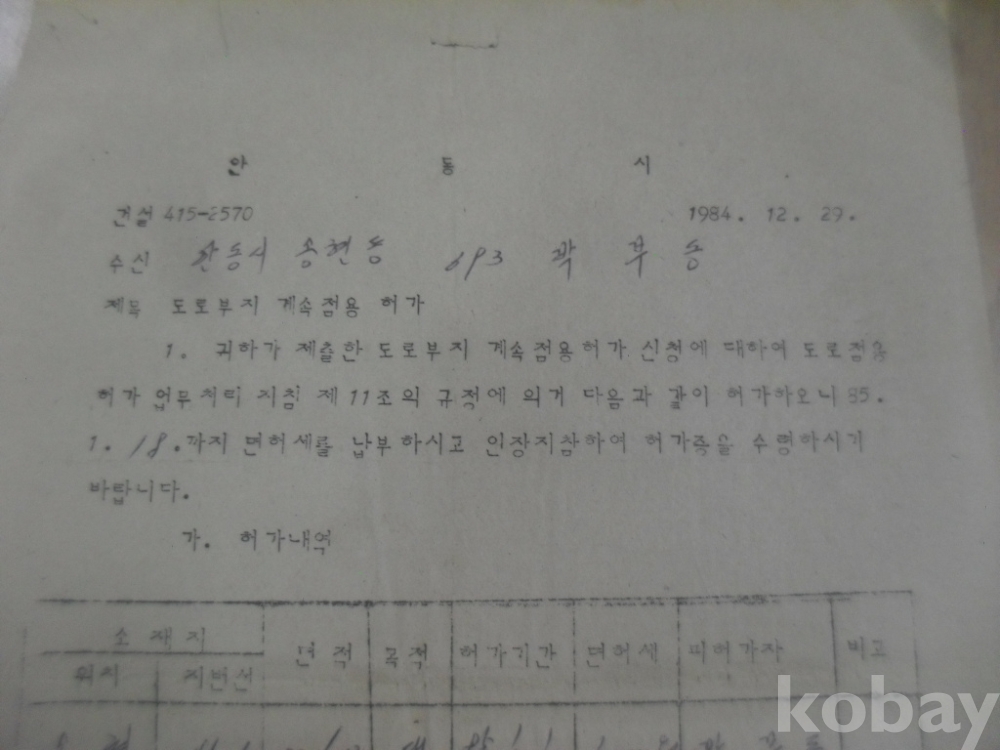 안 동 시
건설 415-2570 1984. 12. 29.
수신 안동시 송현동 693 박 부 동
제목 도로부지 계속점용 허가
1. 귀하가 제출한 도로부지 계속점용허가 신청에 대하여 도로점용
허가 업무처리 지침 제 11조의 규정에 의거 다음과 같이 허가하오니 85.
1. 18.까지 면허세를 납부하시고 인장지참하여 허가증을 수령하시기
바랍니다.
가. 허가내역
소재지 면적 목적 허가기간 면허세 피허가자 비고
위치 지번선
kobay